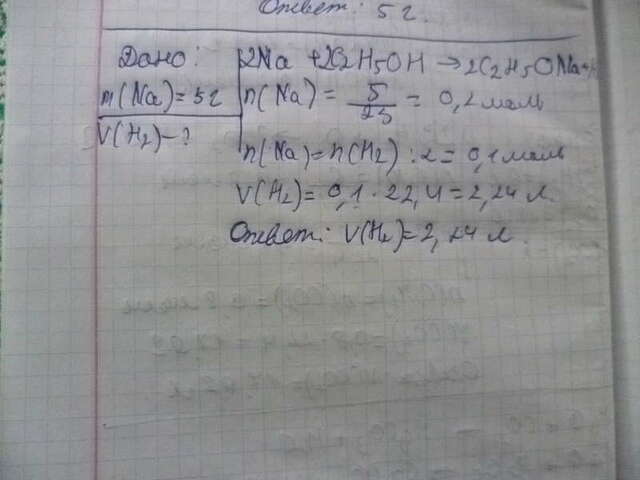 Ответ: 5 г.
Дано:
m(Na)=5г
V(H2)-?
2Na + 2C2H5OH → 2C2H5ONa+H
n(Na) = 5/23 = 0,2 моль
n(Na)=n(H2) : 2 = 0,1 моль
V(H2) = 0,1 · 22,4 = 2,24 л.
Ответ: V(H2)= 2,24 л.